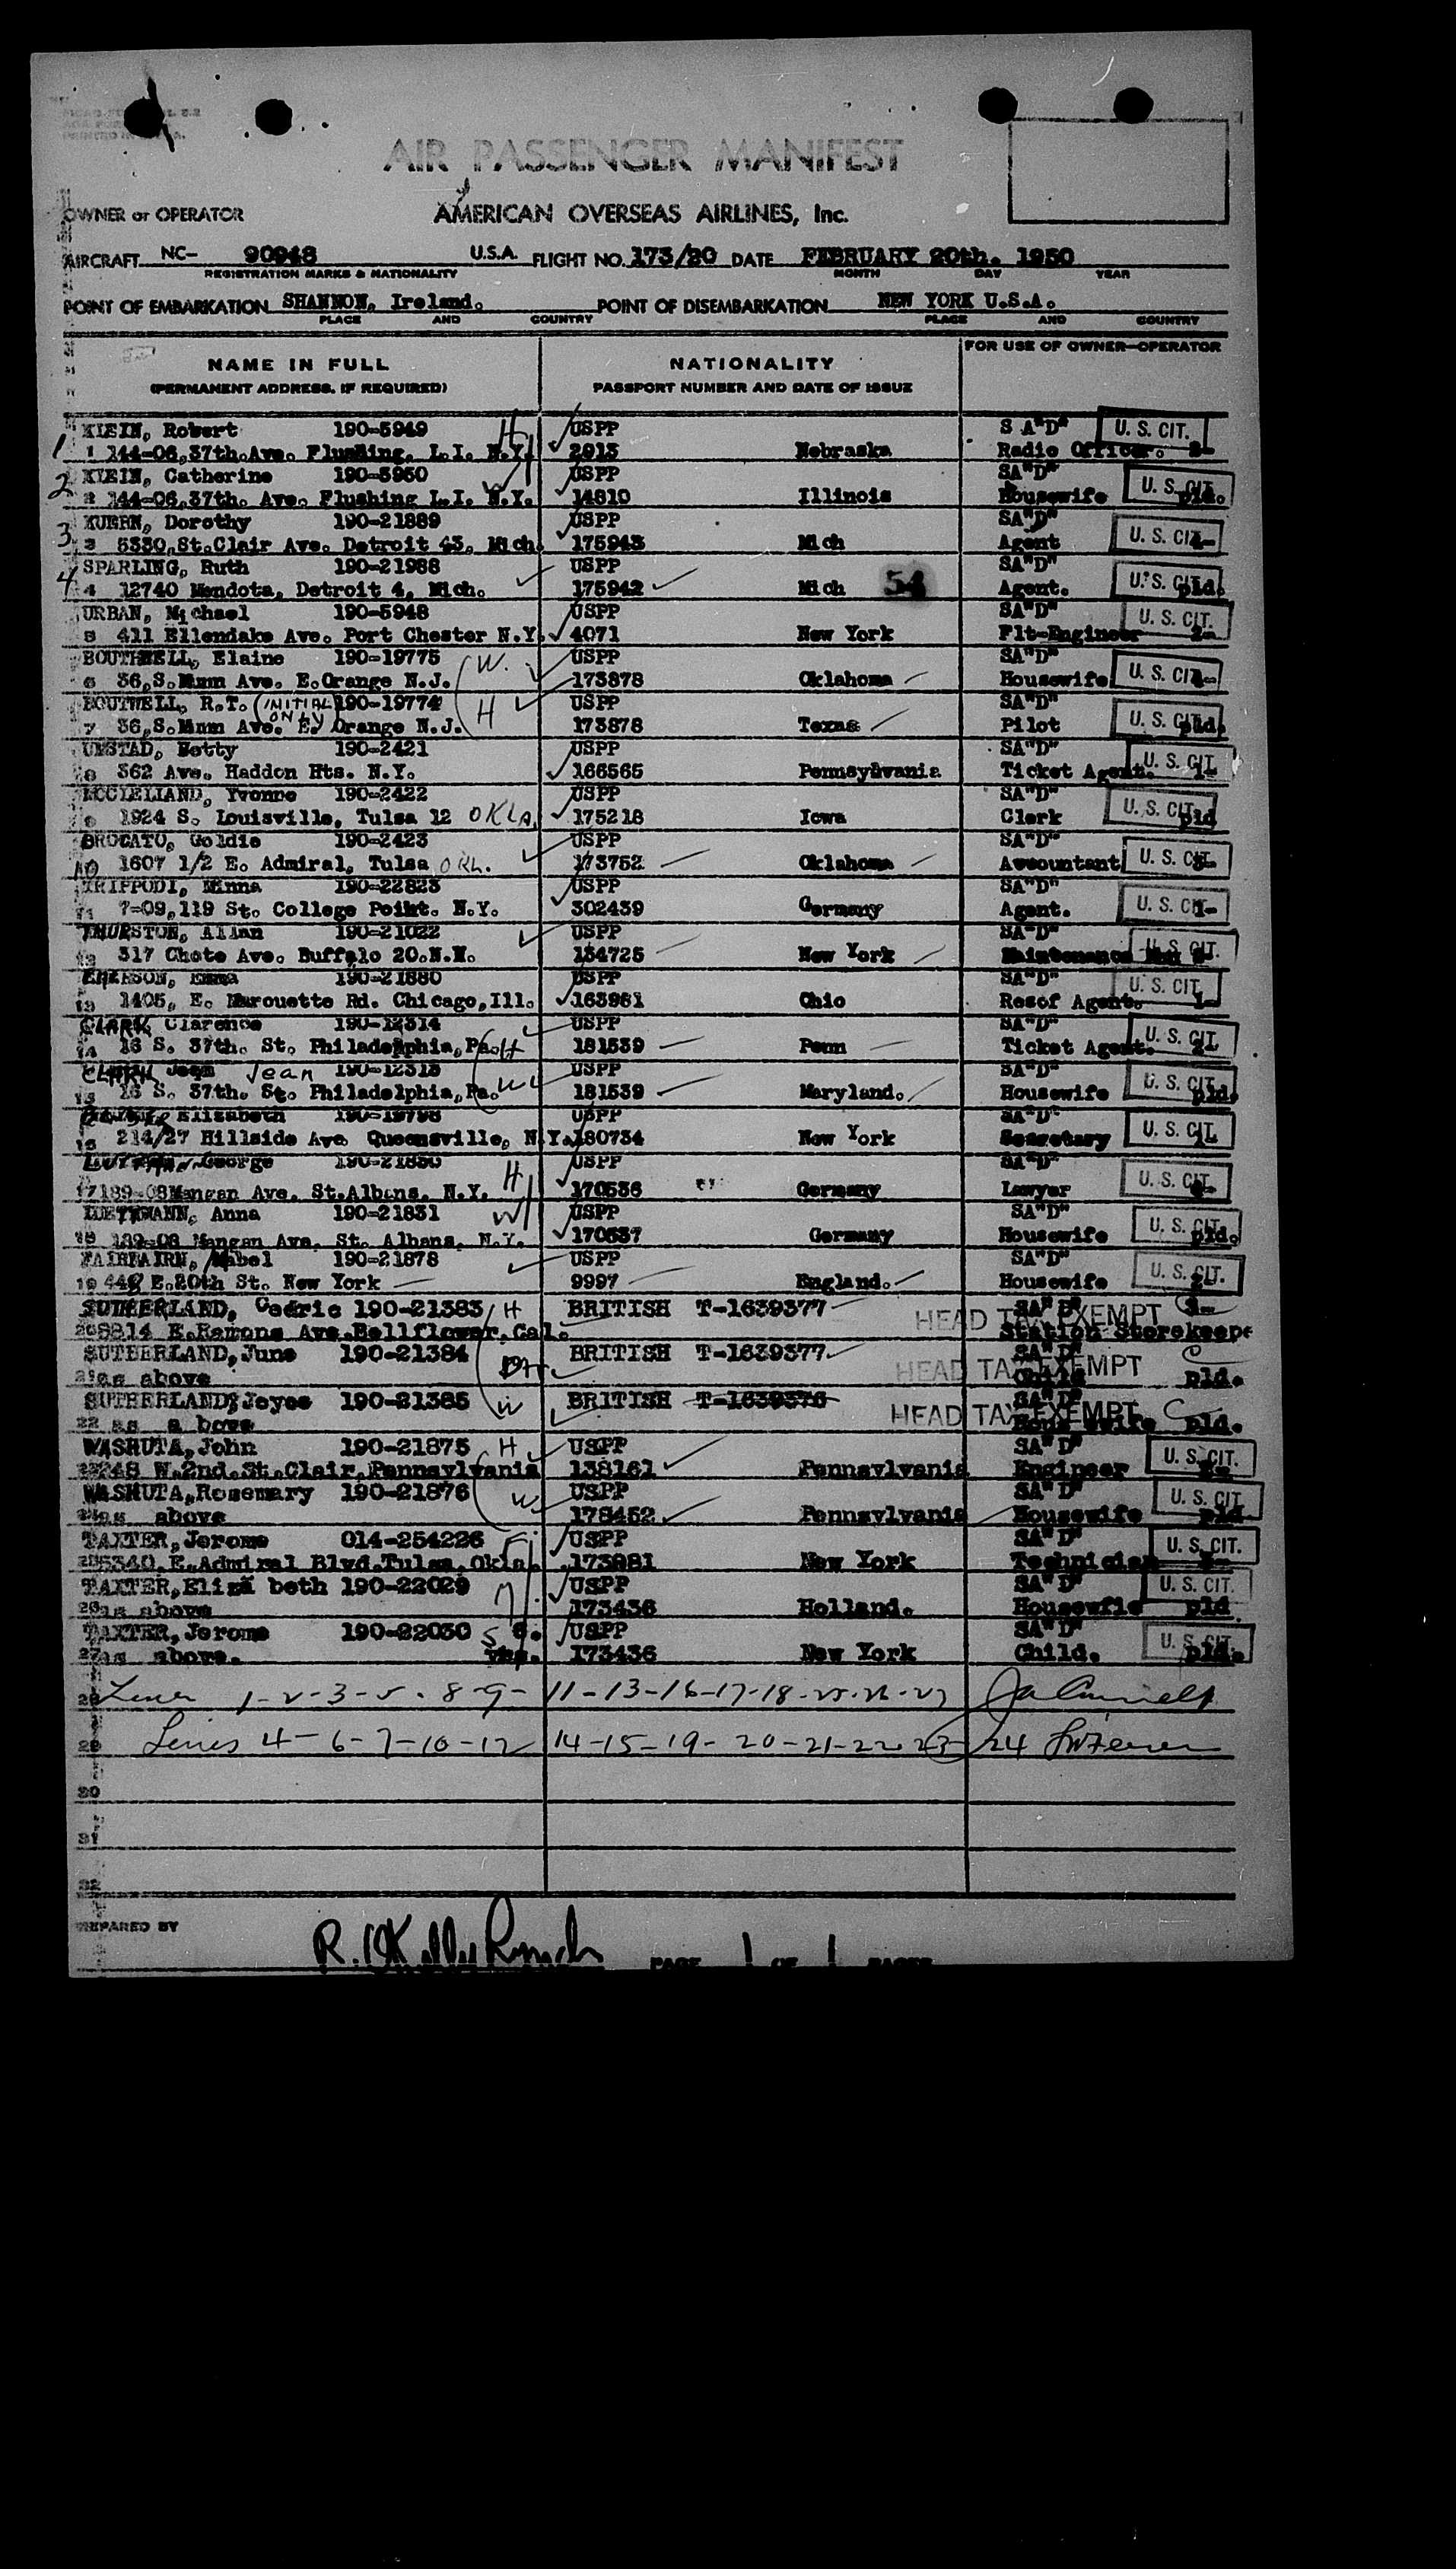 AIR PASSENGER MANIFEST
OWNER or OPERATOR AMERICAN OVERSEAS AIRLINES, Inc.
AIRCRAFT NC- 90948 U.S.A. FLIGHT NO. 173/20 DATE FEBRUARY 20th. 1950
REGISTRATION MARKS & NATIONALITY MONTH DAY YEAR
POINT OF EMBARKATION SHANNON, Ireland. POINT OF DISEMBARKATION NEW YORK U.S.A.
PLACE AND COUNTRY PLACE AND COUNTRY
NAME IN FULL NATIONALITY FOR USE OF OWNER—OPERATOR
(PERMANENT ADDRESS, IF REQUIRED) PASSPORT NUMBER AND DATE OF ISSUE
KLEIN, Robert 190-5949 H USPP S A"D" U. S. CIT.
1 1 144-06,37th.Ave. Flushing. L.I. N.Y. 2913 Nebraska Radio Officer.
KLEIN, Catherine 190-5950 W USPP SA"D" U. S. CIT.
2 2 144-06,37th. Ave. Flushing L.I. N.Y. 14810 Illinois Housewife pld.
KUERN, Dorothy 190-21889 USPP SA"D"
3 3 5330,St.Clair Ave. Detroit 43. Mich. 175943 Mich Agent U. S. CIT.
SPARLING, Ruth 190-21988 USPP SA"D"
4 4 12740 Mendota, Detroit 4, Mich. 175942 Mich 54 Agent. U. S. CIT. pld.
URBAN, Michael 190-5948 USPP SA"D" U. S. CIT.
5 411 Ellendake Ave. Port Chester N.Y. 4071 New York Flt-Engineer 2-
BOUTWELL, Elaine 190-19775 W. USPP SA"D"
6 36,S.Munn Ave. E.Orange N.J. 173878 Oklahoma Housewife U. S. CIT.
BOUTWELL, R.T. (INITIAL ONLY) 190-19774 H USPP SA"D"
7 36,S.Munn Ave. E. Orange N.J. 173878 Texas Pilot U. S. CIT. pld.
UNSTAD, Betty 190-2421 USPP SA"D" U. S. CIT.
8 362 Ave. Haddon Hts. N.Y. 166565 Pennsylvania Ticket Agent. 1-
MCCLELLAND, Yvonne 190-2422 USPP SA"D"
9 1924 S. Louisville, Tulsa 12 OKLA. 175218 Iowa Clerk U. S. CIT. pld
BROCATO, Goldie 190-2423 USPP SA"D"
10 1607 1/2 E. Admiral, Tulsa OKL. 173752 Oklahoma Accountant U. S. CIT.
TRIPPODI, Minna 190-22823 USPP SA"D"
11 7-09,119 St. College Point. N.Y. 302439 Germany Agent. U. S. CIT. 1-
THURSTON, Allan 190-21022 USPP SA"D"
12 317 Chote Ave. Buffalo 20.N.N. 134725 New York Maintenance U. S. CIT.
EMERSON, Emma 190-21880 USPP SA"D" U. S. CIT.
13 1405, E. Marouette Rd. Chicago,Ill. 163981 Ohio Resof Agent. 1-
CLARK Clarence 190-12314 USPP SA"D"
14 16 S. 37th. St. Philadelphia,Pa. H 181539 Penn Ticket Agent. U. S. CIT.
CLARK Jean Jean 190-12313 W USPP SA"D"
15 16 S. 37th. St. Philadelphia,Pa. 181539 Maryland. Housewife U. S. CIT. pld.
Elizabeth 190-19798 USPP SA"D"
16 214/27 Hillside Ave Queensville, N.Y. 180734 New York Secretary U. S. CIT.
George 190-21830 H USPP SA"D"
17 189-08Mangan Ave. St.Albans. N.Y. 170536 Germany Lawyer U. S. CIT.
Anna 190-21831 W USPP SA"D"
18 189-08 Mangan Ave. St. Albans. N.Y. 170537 Germany Housewife U. S. CIT. pld.
FAIRBAIRN, Mabel 190-21878 USPP SA"D"
19 448 E.20th St. New York 9997 England. Housewife U. S. CIT.
SUTHERLAND, Cedric 190-21383 H BRITISH T-1639377 SA"D" HEAD TAX EXEMPT
20 8814 E.Ramona Ave.Bellflower.Cal. Station Storekeepe
SUTHERLAND,June 190-21384 BRITISH T-1639377 SA"D" HEAD TAX EXEMPT
21 as above Child pld.
SUTHERLAND,Joyce 190-21385 W BRITISH T-1639376 SA"D" HEAD TAX EXEMPT
22 as a bove Housewife pld.
WASHUTA,John 190-21875 H USPP SA"D"
23 248 W.2nd.St.Clair,Pennsylvania 138161 Pennsylvania Engineer U. S. CIT.
WASHUTA,Rosemary 190-21876 W USPP SA"D"
24 as above 178452 Pennsylvania Housewife U. S. CIT. pld.
TAXTER,Jerome 014-254226 F. USPP SA"D"
25 5340,E.Admiral Blvd.Tulsa,Okla. 173981 New York Technician U. S. CIT.
TAXTER,Eliza beth 190-22029 M USPP SA"D"
26 as above 173436 Holland. Housewfie U. S. CIT. pld
TAXTER,Jerome 190-22030 S USPP SA"D"
27 as above. 173436 New York Child. U. S. CIT. pld.
28 Lines 1-2-3-5-8-9-11-13-16-17-18-25-26-27
29 Lines 4-6-7-10-12 14-15-19-20-21-22-23-24
30
31
32
PREPARED BY
PAGE 1 OF 1 PAGES